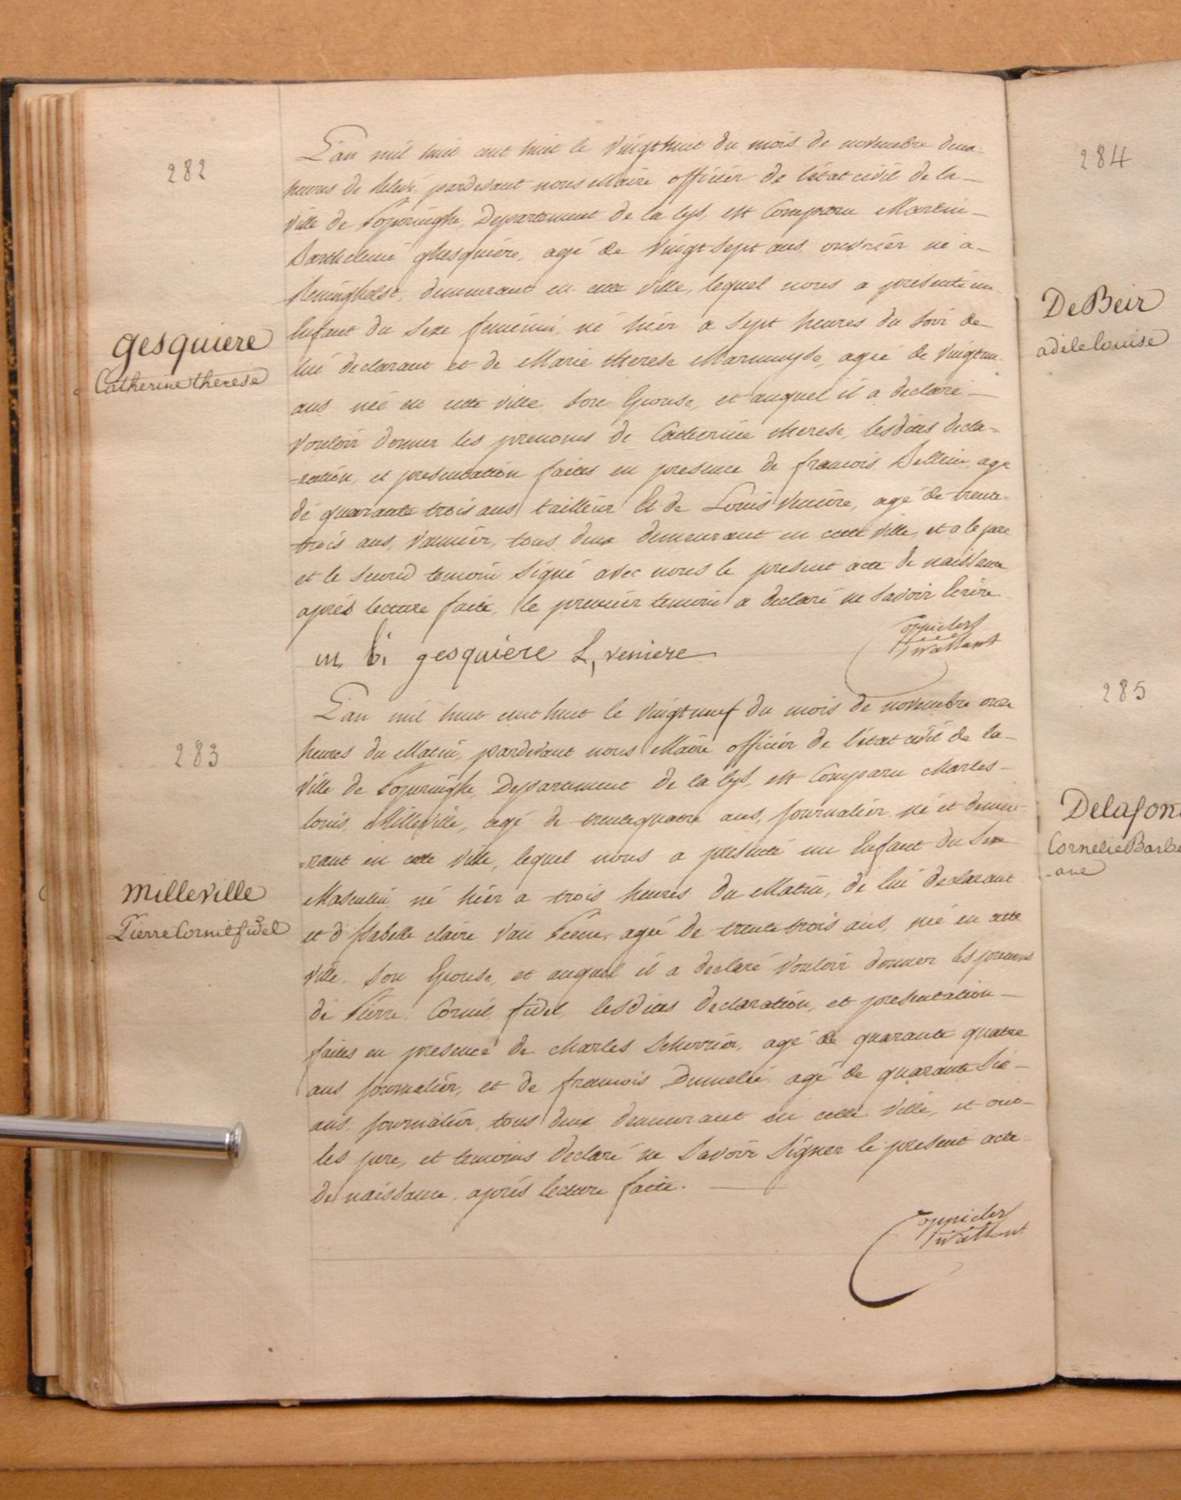 282
gesquiere
Catherine therese
L'an mil huit cent huit le vingt huit du mois de novembre deux
heures de relevé, pardevant nous Maire officier de l'état civil de la
ville de Poperinghe, Departement de la Lys, est Comparu Martin
Barthelemi ghesquiere, agé de vingt sept ans, ouvrier né a
Reninghelst, demeurant en cette ville, lequel nous a presenté un
Enfant du Sexe feminin, né hier a sept heures du soir de
lui declarant et de Marie therese, agée de vingt un
ans née en cette ville, son Epouse, et auquel il a declaré
vouloir donner les prenoms de Catherine therese, lesdites decla-
-ration, et presentation faites en presence de francois, agé
de quarante trois ans tailleur Et de Louis veniere, agé de trente
trois ans, vannier, tous deux demeurant en cette ville, et a le pere
et le second temoin signé avec nous le present acte de naissance
aprés lecture faite, le premier temoin a declaré ne savoir Ecrire
m. b. gesquière L, veniere
283
milleville
Pierre Cornil fidel
L'an mil huit cent huit le vingt neuf du mois de novembre onze
heures du Matin, pardevant nous Maire officier de l'état civil de la
ville de Poperinghe, Departement de la Lys, est Comparu Charles
louis Milleville, agé de trente quatre ans, journalier, né et demeu-
-rant en cette ville, lequel nous a presenté un Enfant du Sexe
Masculin, né hier a trois heures du Matin, de lui declarant
et d'Isabelle claire van, agée de trente trois ans, née en cette
ville, son Epouse, et auquel il a declaré vouloir donner les prenoms
de Pierre Cornil fidel, lesdites declaration, et presentation
faites en presence de charles, agé de quarante quatre
ans journalier, et de francois, agé de quarante six
ans journalier, tous deux demeurant en cette ville, et ont
les pere, et temoins declaré ne savoir signer le present acte
de naissance, aprés lecture faite.
284
De Beir
adile louise
285
Delafon
Cornelie Barb
-ane